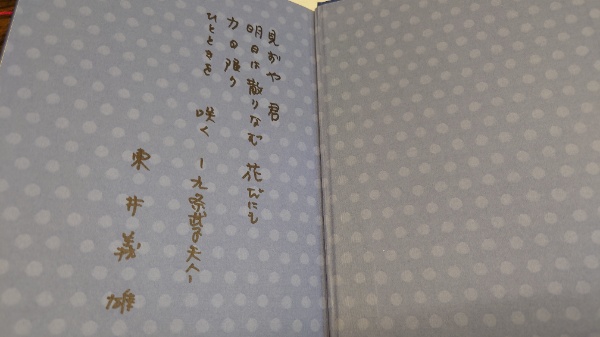 見ずや 君
明日は散りなむ 花だにも
力の限り
ひとときを 咲く
ー九条武子夫人ー
東井義雄